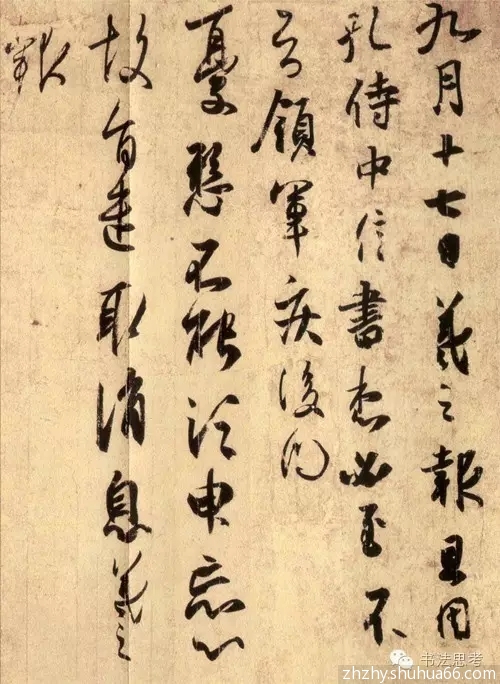 九月十七日羲之報且因
孔侍中信書想必至不
知領軍疾後問
憂懸不能須臾忘心
故旬遣取消息羲之
報
书法思考
zhzhy.shuhua66.com